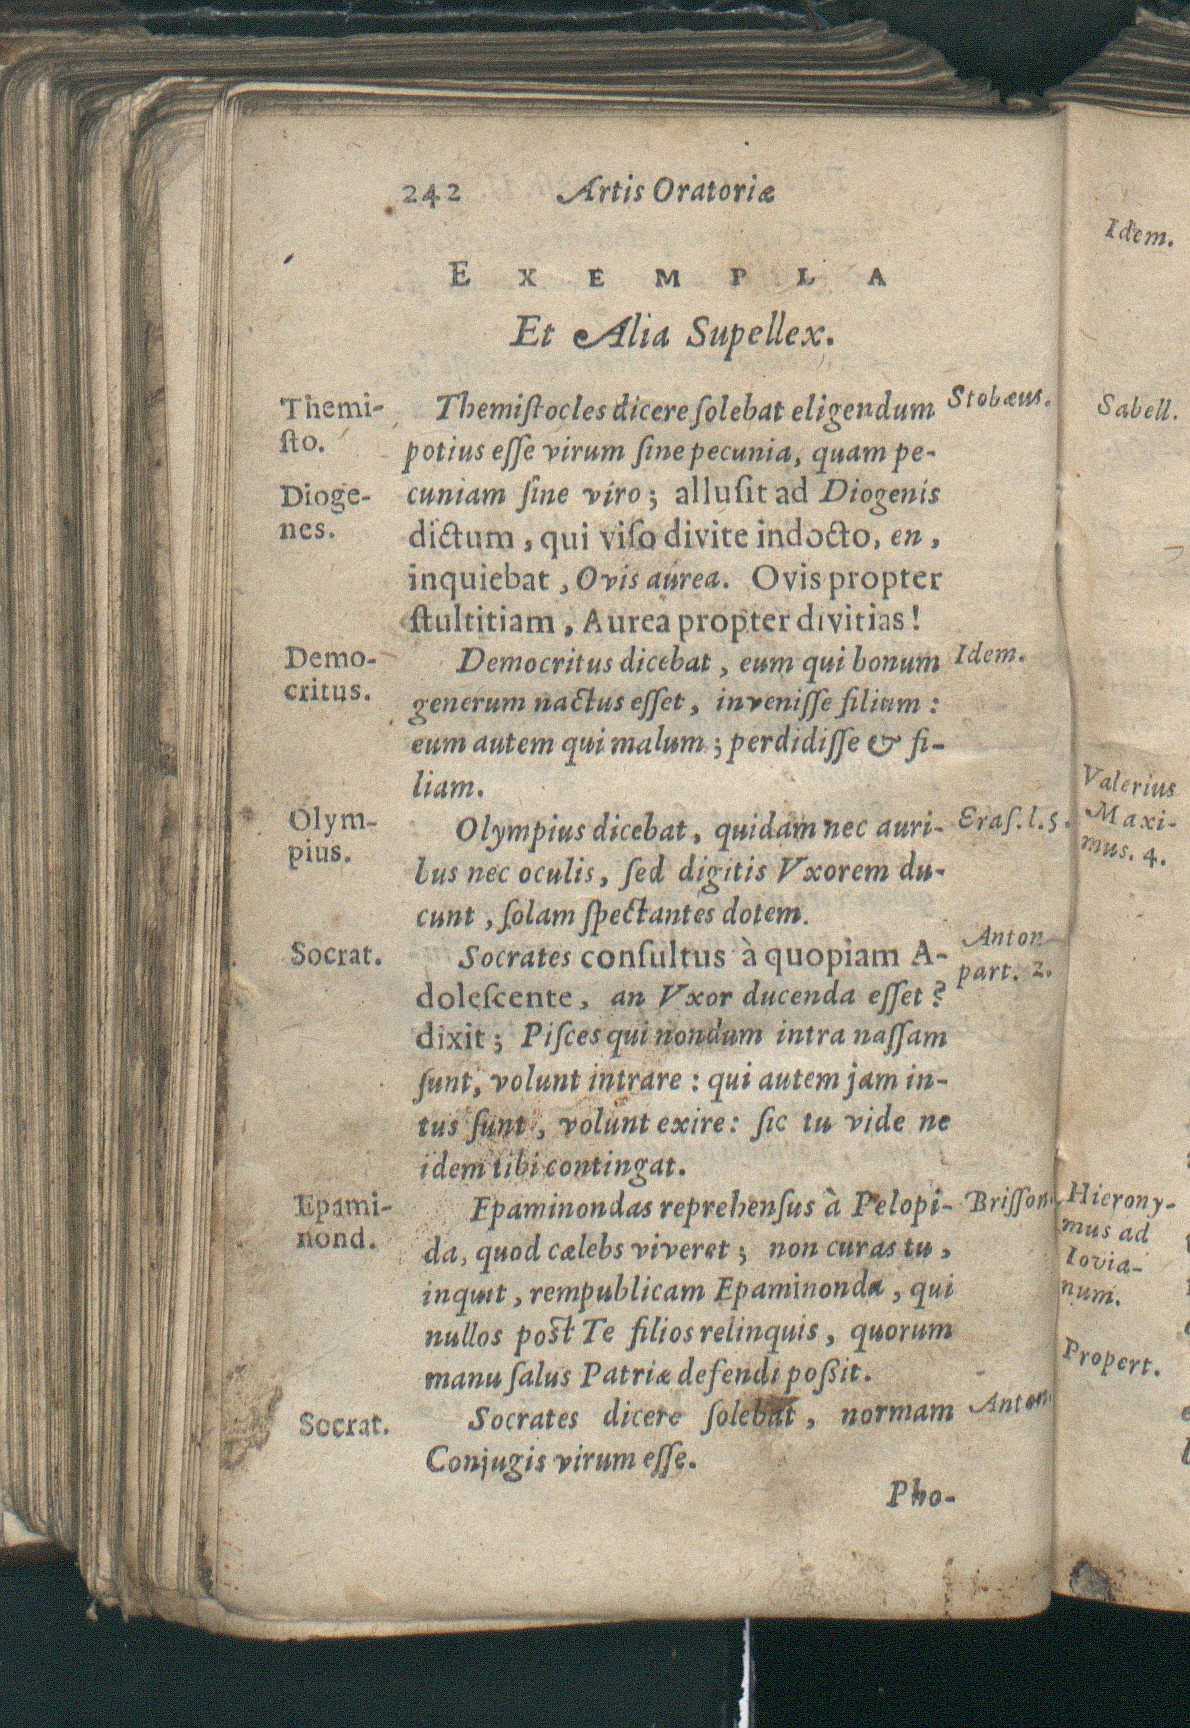 242 Artis Oratoriæ
EXEMPLA
Et Alia Supellex.
Themi-
sto.
Themiſtocles dicere ſolebat eligendum
Stobæus.
potius eſſe virum ſine pecunia, quam pe-
Dioge-
nes.
cuniam ſine viro; alluſit ad Diogenis
dictum, qui viſo divite indocto, en,
inquiebat, Ovis aurea. Ovis propter
ſtultitiam, Aurea propter divitias!
Demo-
critus.
Democritus dicebat, eum qui bonum
Idem.
generum nactus eſſet, inveniſſe filium:
eum autem qui malum; perdidiſſe & fi-
liam.
Olym-
pius.
Olympius dicebat, quidam nec auri-
Eraſ. l. 5.
bus nec oculis, ſed digitis Vxorem du-
cunt, ſolam ſpectantes dotem.
Socrat.
Socrates conſultus à quopiam A-
Anton
part. 2.
doleſcente, an Vxor ducenda eſſet?
dixit; Piſces qui nondum intra naſſam
ſunt, volunt intrare: qui autem jam in-
tus ſunt, volunt exire: ſic tu vide ne
idem tibi contingat.
Epami-
nond.
Epaminondas reprehenſus à Pelopi-
Briſſon.
da, quod cælebs viveret; non curas tu,
inquit, rempublicam Epaminonda, qui
nullos poſt Te filios relinquis, quorum
manu ſalus Patriæ defendi poßit.
Socrat.
Socrates dicere ſolebat, normam
Anton
Conjugis virum eſſe.
Pho-
Idem.
Sabell.
Valerius
Maxi-
mus. 4.
Hierony-
mus ad
Iovia-
num.
Propert.